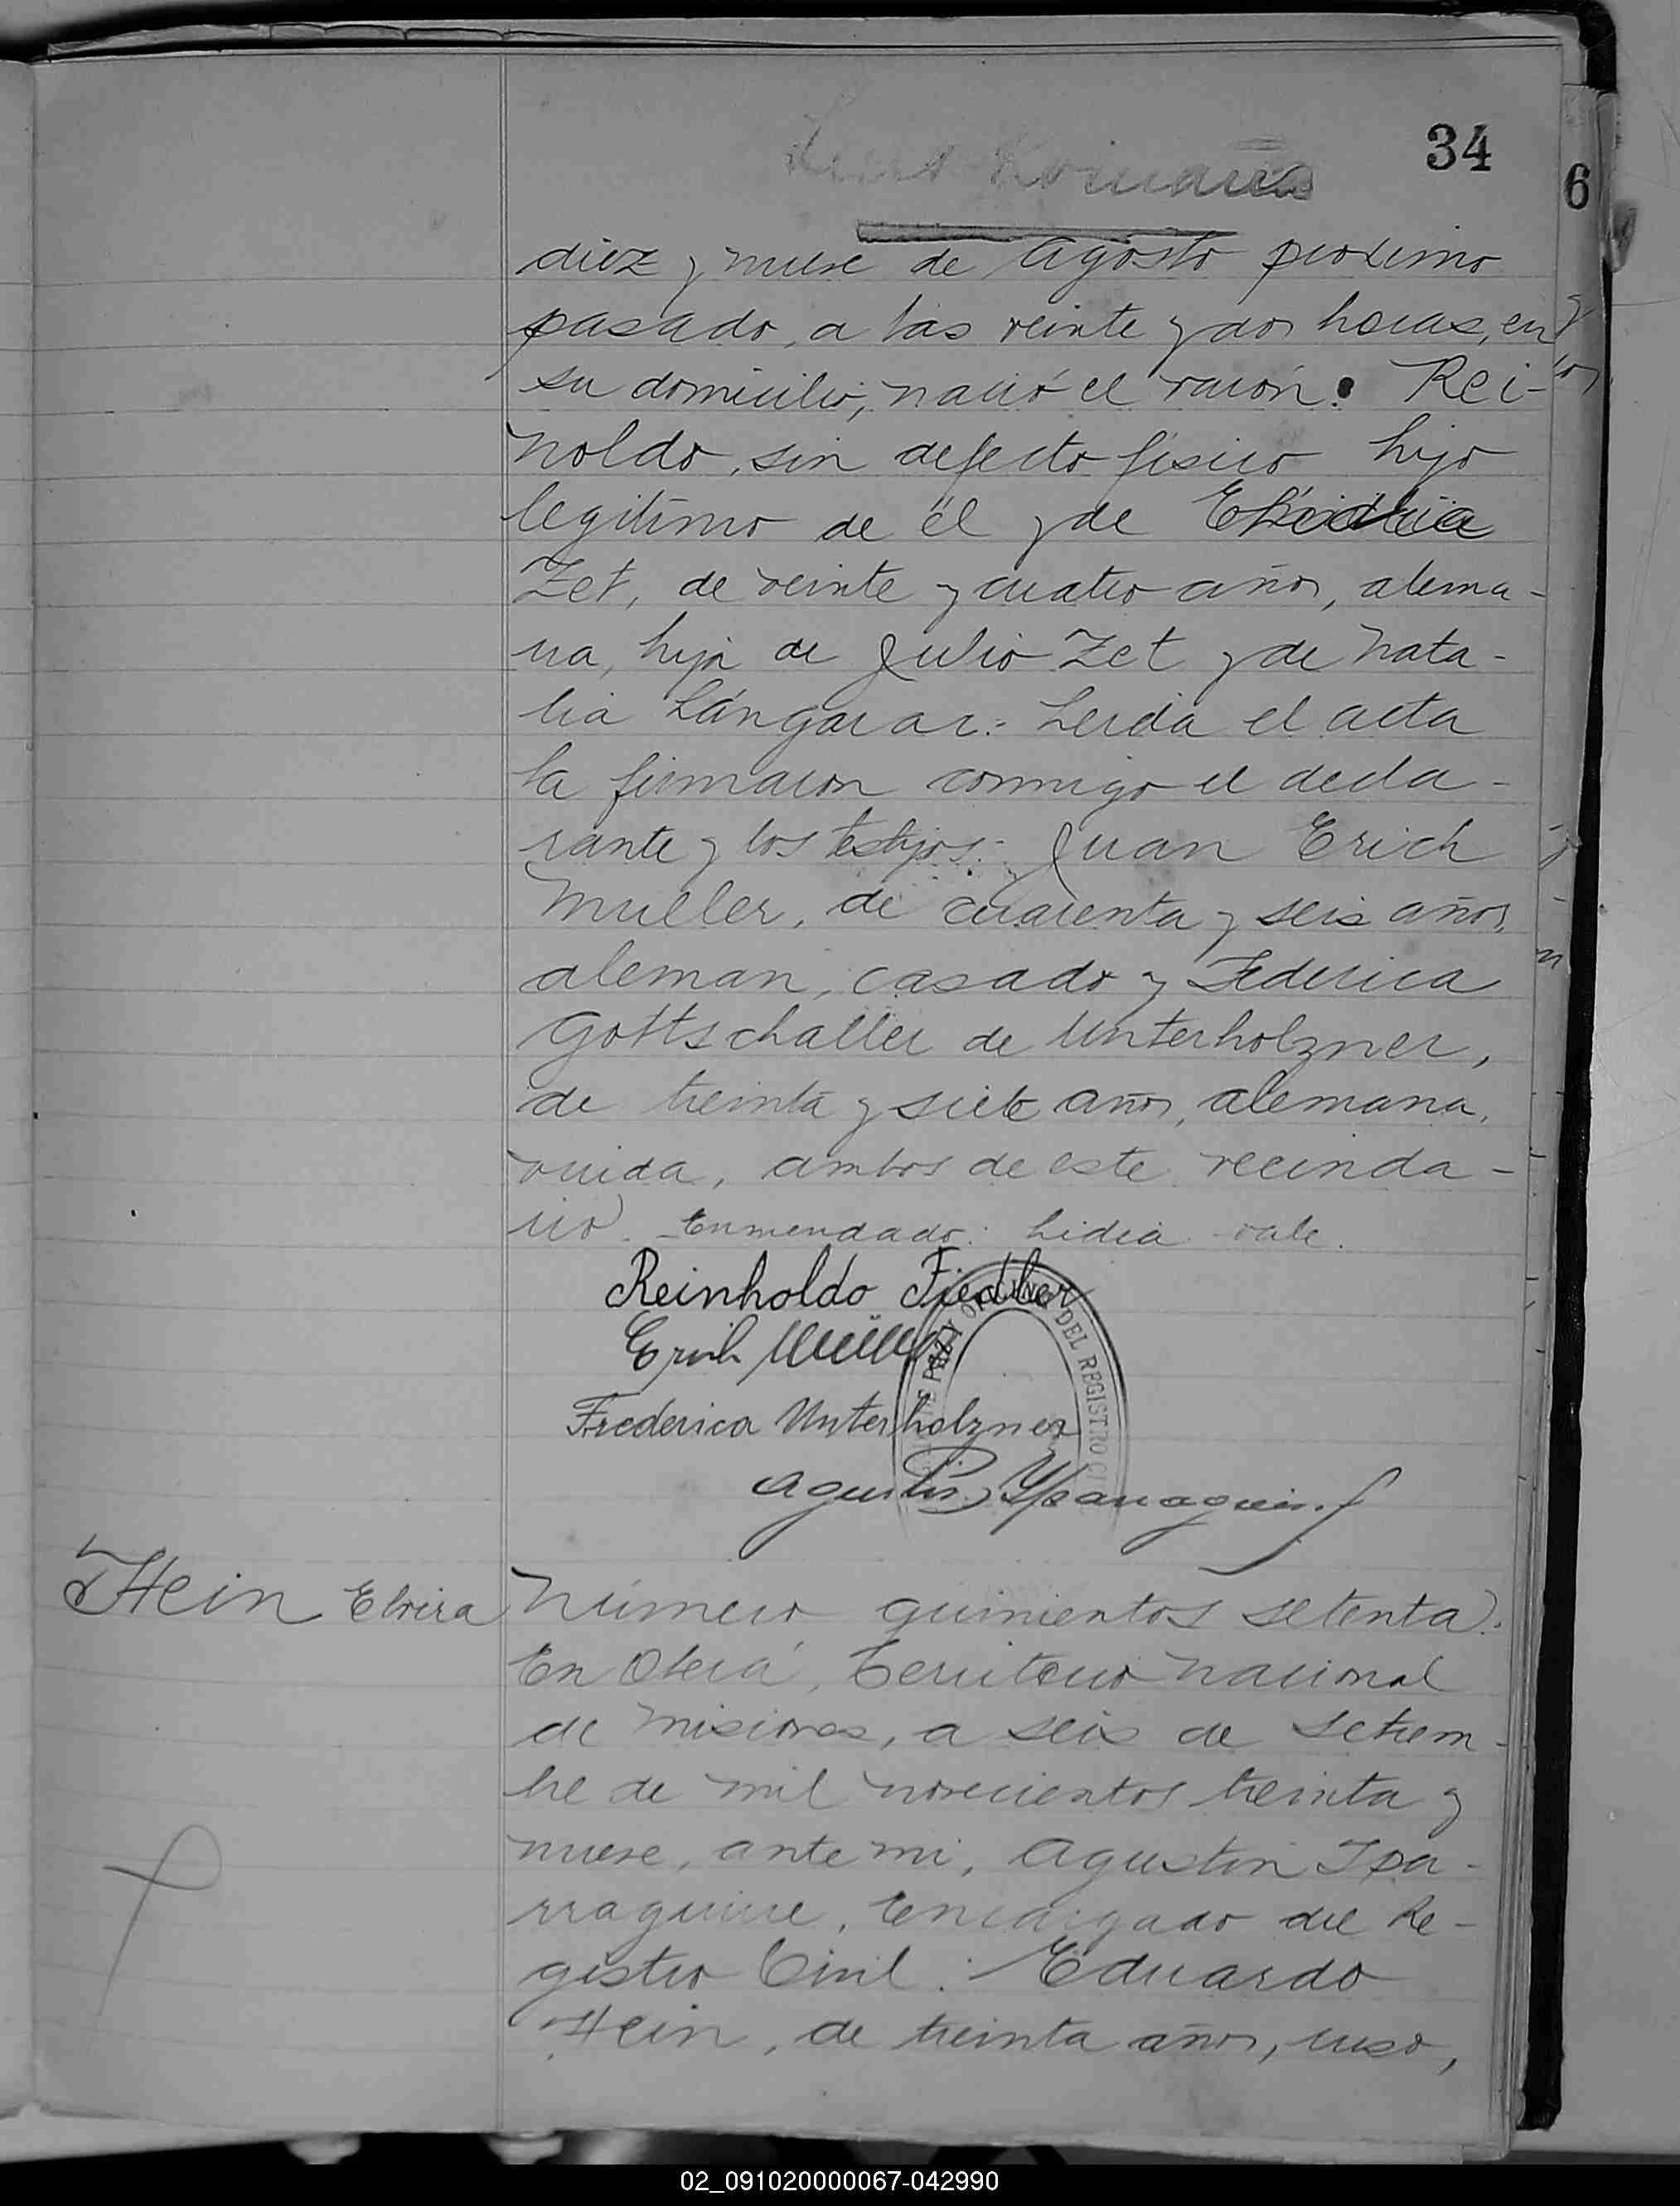 34
6
diez y nueve de Agosto proximo
pasado, a las veinte y dos horas, en
su domicilio, nació el varón: Rei-
noldo, sin defecto físico hijo
legítimo de él y de
Zet, de veinte y cuatro años, alema-
na, hija de Julio Zet y de Nata-
lia Lángarar.- Leida el acta
la firmaron conmigo el decla-
rante y los testigos: Juan Erich
Muller, de cuarenta y seis años,
aleman, casado y Federica
Gottschaller de Unterholzner,
de treinta y siete años, alemana,
viuda, ambos de este vecinda-
rio. Enmendado: Lidia vale.
Reinholdo Fiedler
Erich Müller
Frederica Unterholzner
Agustin Yparraguirre
DEL REGISTRO CI
Hein Elvira
Número quinientos setenta.
En Oberá, Territorio Nacional
de Misiones, a seis de Setiem-
bre de mil novecientos treinta y
nueve, ante mi, Agustin Ipa-
rraguirre, Encargado del Re-
gistro Civil: Eduardo
Hein, de treinta años, ruso,
02_091020000067-042990